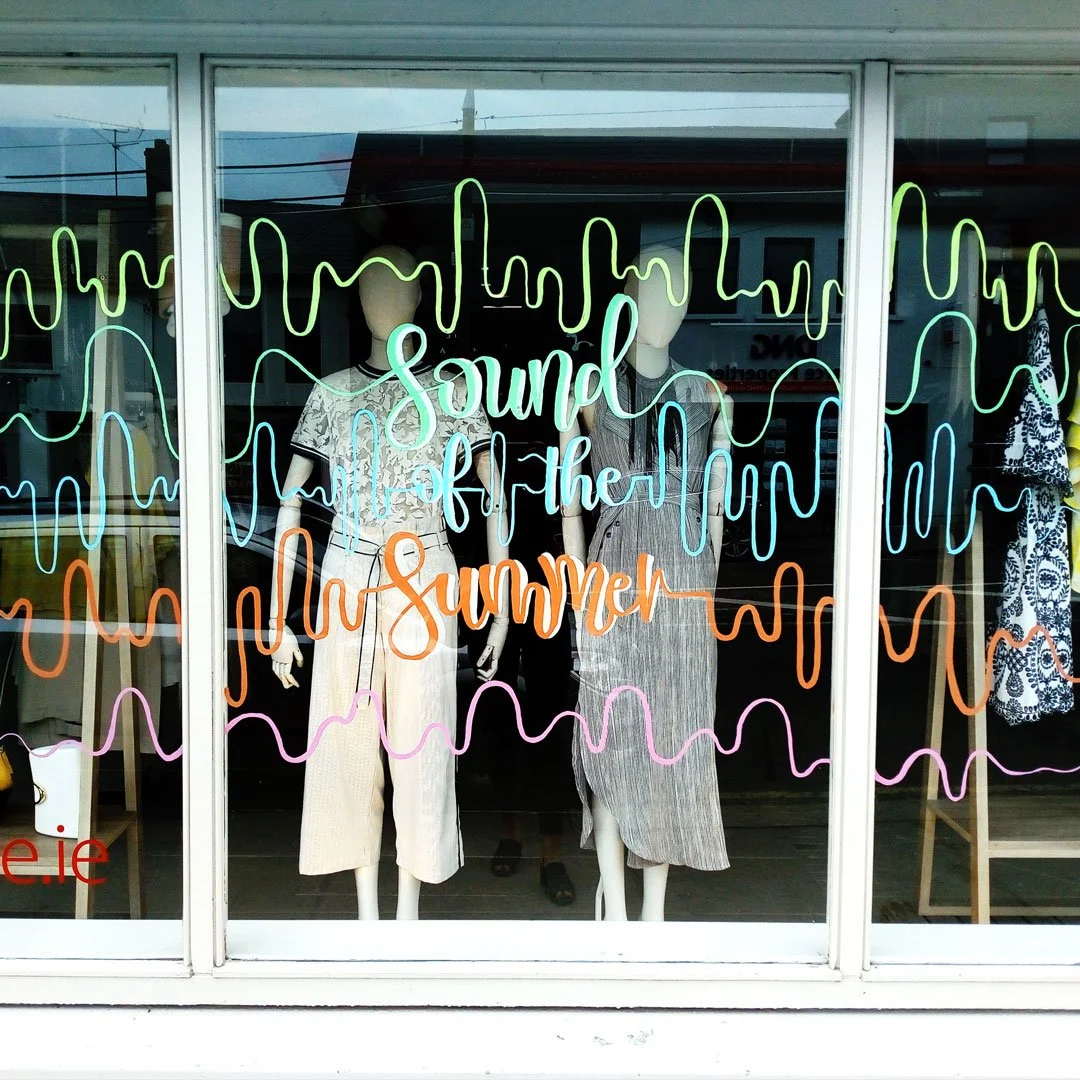 Sound
of the
Summer
e.ie